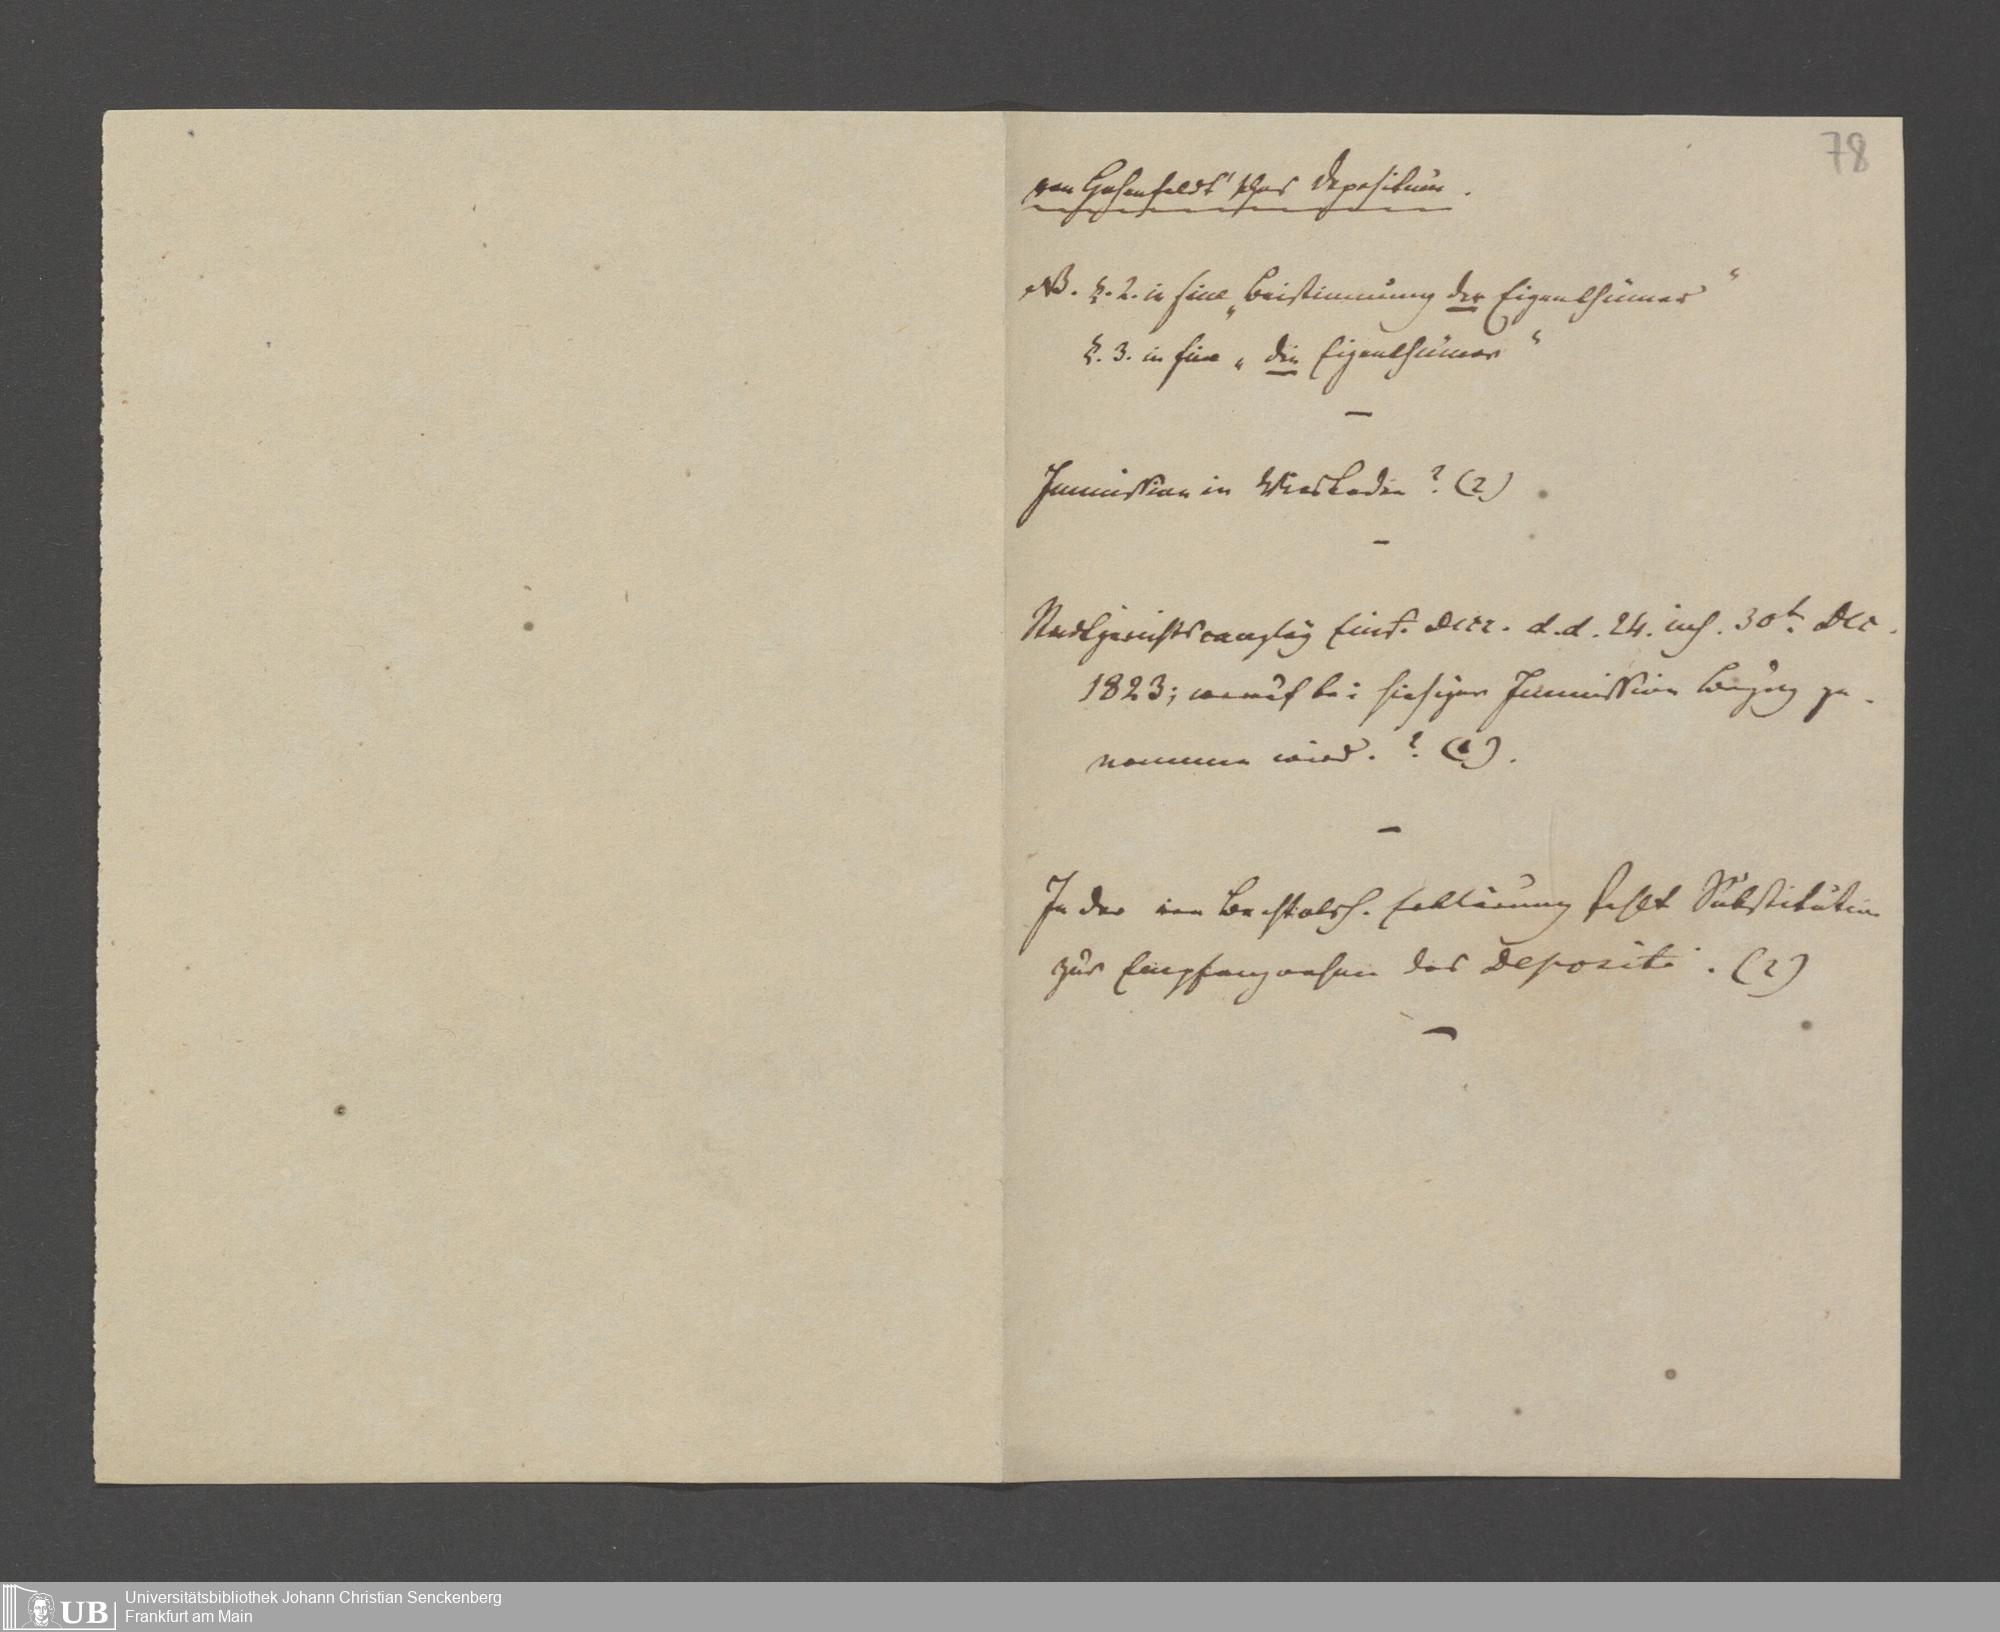 78
von Hohenfeldt'sches Depositum.
NB. §. 2. in fine „Beistimmung der Eigenthümer“
§. 3. in fine „die Eigenthümer“
—
Immission in Wiesbaden? (2)
—
Stadtgerichtscanzley Decr. d.d. 24. 30t. Dec.
1823; worauf bei hiesiger Immission Bezug ge-
nommen wird.? (1).
—
In der von Erklärung fehlt Substitution
zur Empfangnahme des Depositi. (2)
—
UB
Universitätsbibliothek Johann Christian Senckenberg
Frankfurt am Main